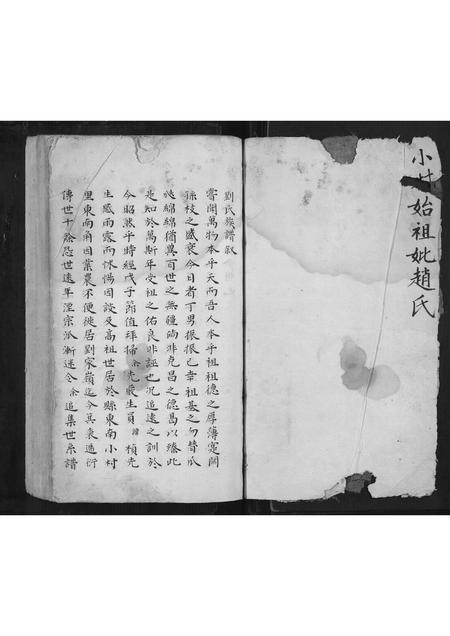 小村始祖妣趙氏
劉氏族譜叙
嘗聞萬物本乎天而吾人本乎祖祖德之厚薄寔關
孫枝之盛衰今日者丁男振振已幸祖基之勿替瓜
瓞綿綿猶冀百世之無疆倘非克昌之德曷以臻此
是知於萬斯年受祖之佑良非誣也况追遠之訓於
今昭然乎時經戊子節值拜掃余先嚴生員諱楨先
生感雨露而怵惕因談及高祖世居於縣東南小村
里東南甬因業農不便徙居劉家嶺迄今其衰遞衍
傳世十餘恐世遠年湮宗派漸迷令余追集世系譜